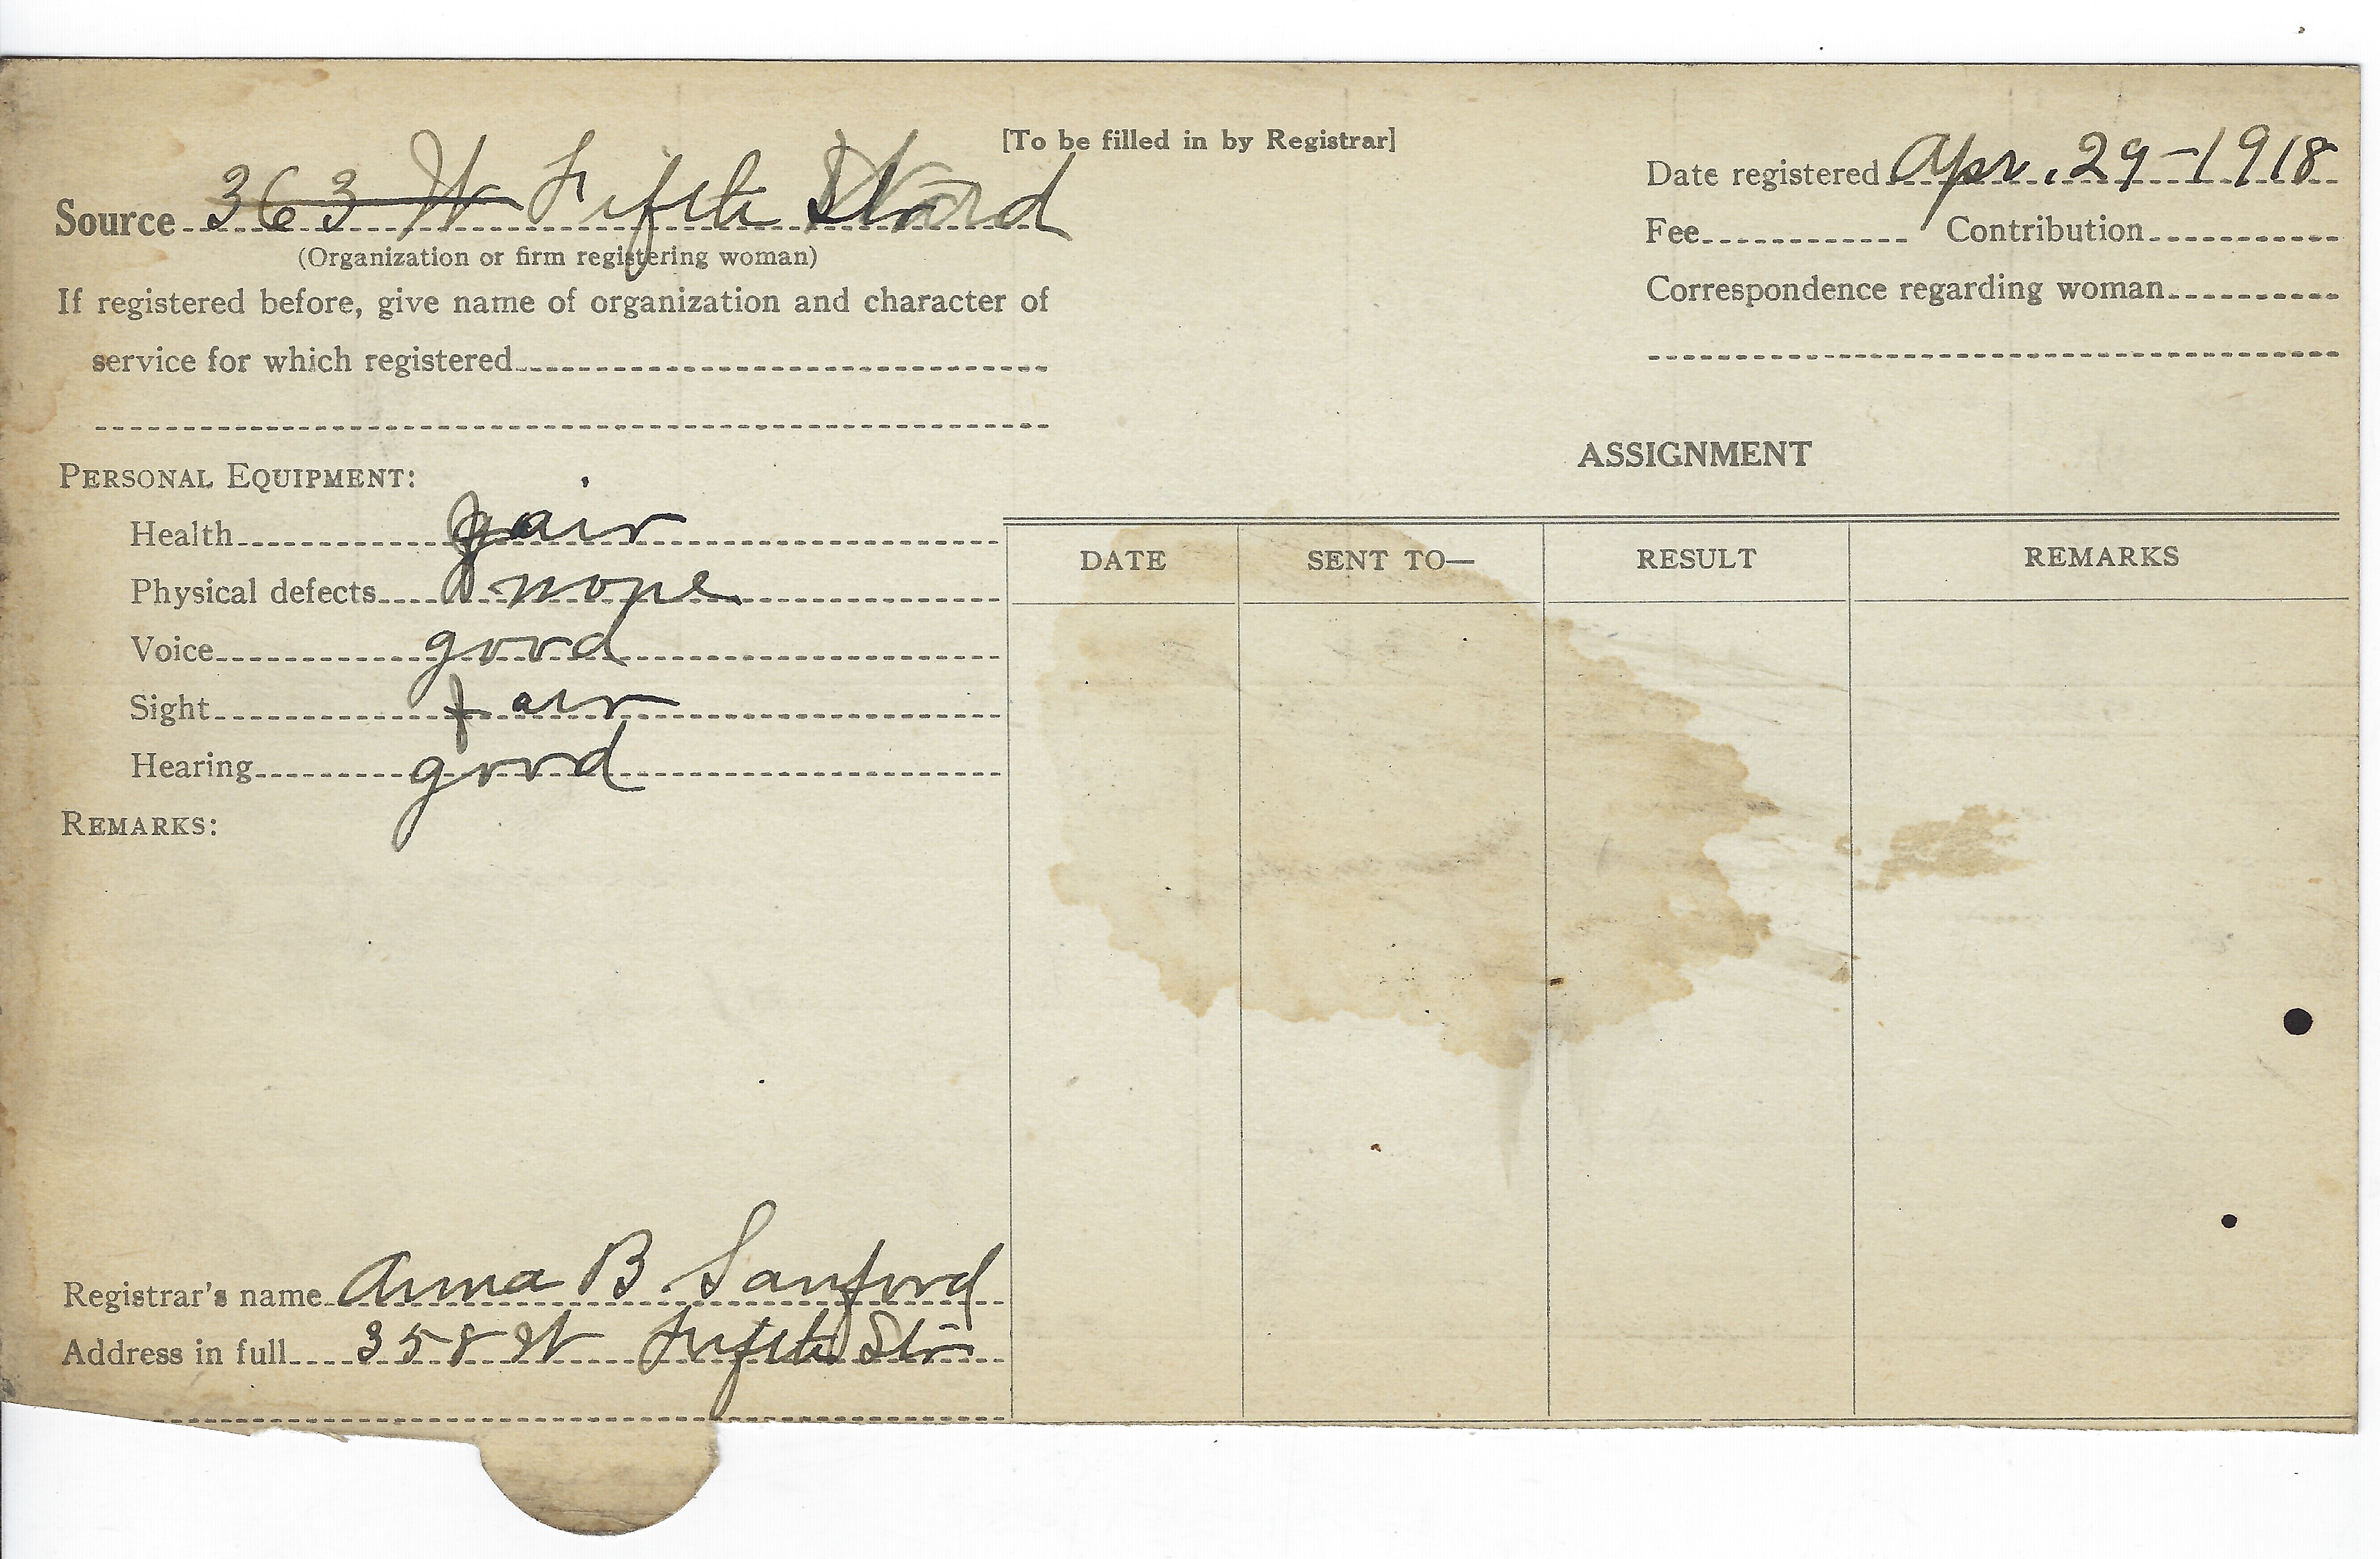 [To be filled in by Registrar]
Source 363 W Fifth Ward
(Organization or firm registering woman)
If registered before, give name of organization and character of
service for which registered
Date registered Apr. 29-1918
Fee Contribution
Correspondence regarding woman
PERSONAL EQUIPMENT:
Health fair
Physical defects none
Voice good
Sight fair
Hearing good
REMARKS:
Registrar's name Anna B Sanford
Address in full 358 W Fifth Str
ASSIGNMENT
DATE SENT TO— RESULT REMARKS